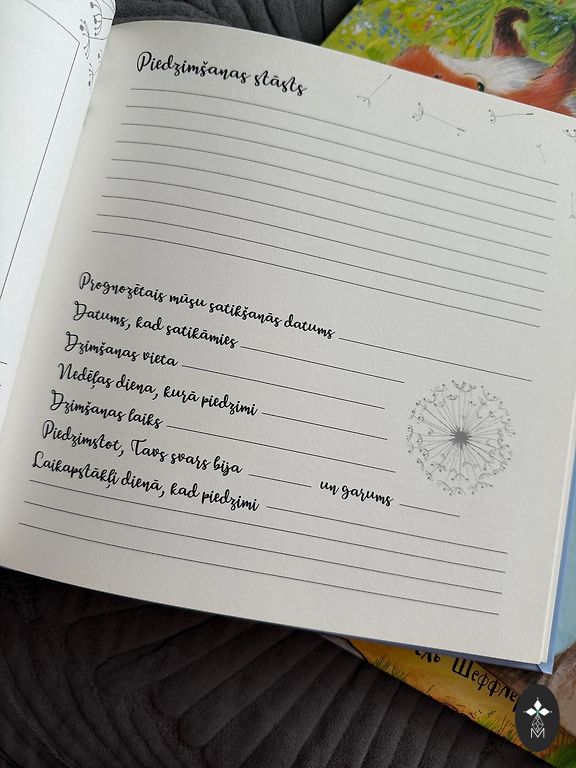 Piedzimšanas stāsts
Prognozētais mūsu satikšanās datums
Datums, kad satikāmies
Dzimšanas vieta
Nedēļas diena, kurā piedzimi
Dzimšanas laiks
Piedzimstot, Tavs svars bija un garums
Laikapstākļi dienā, kad piedzimi
ель Шеффлер
M